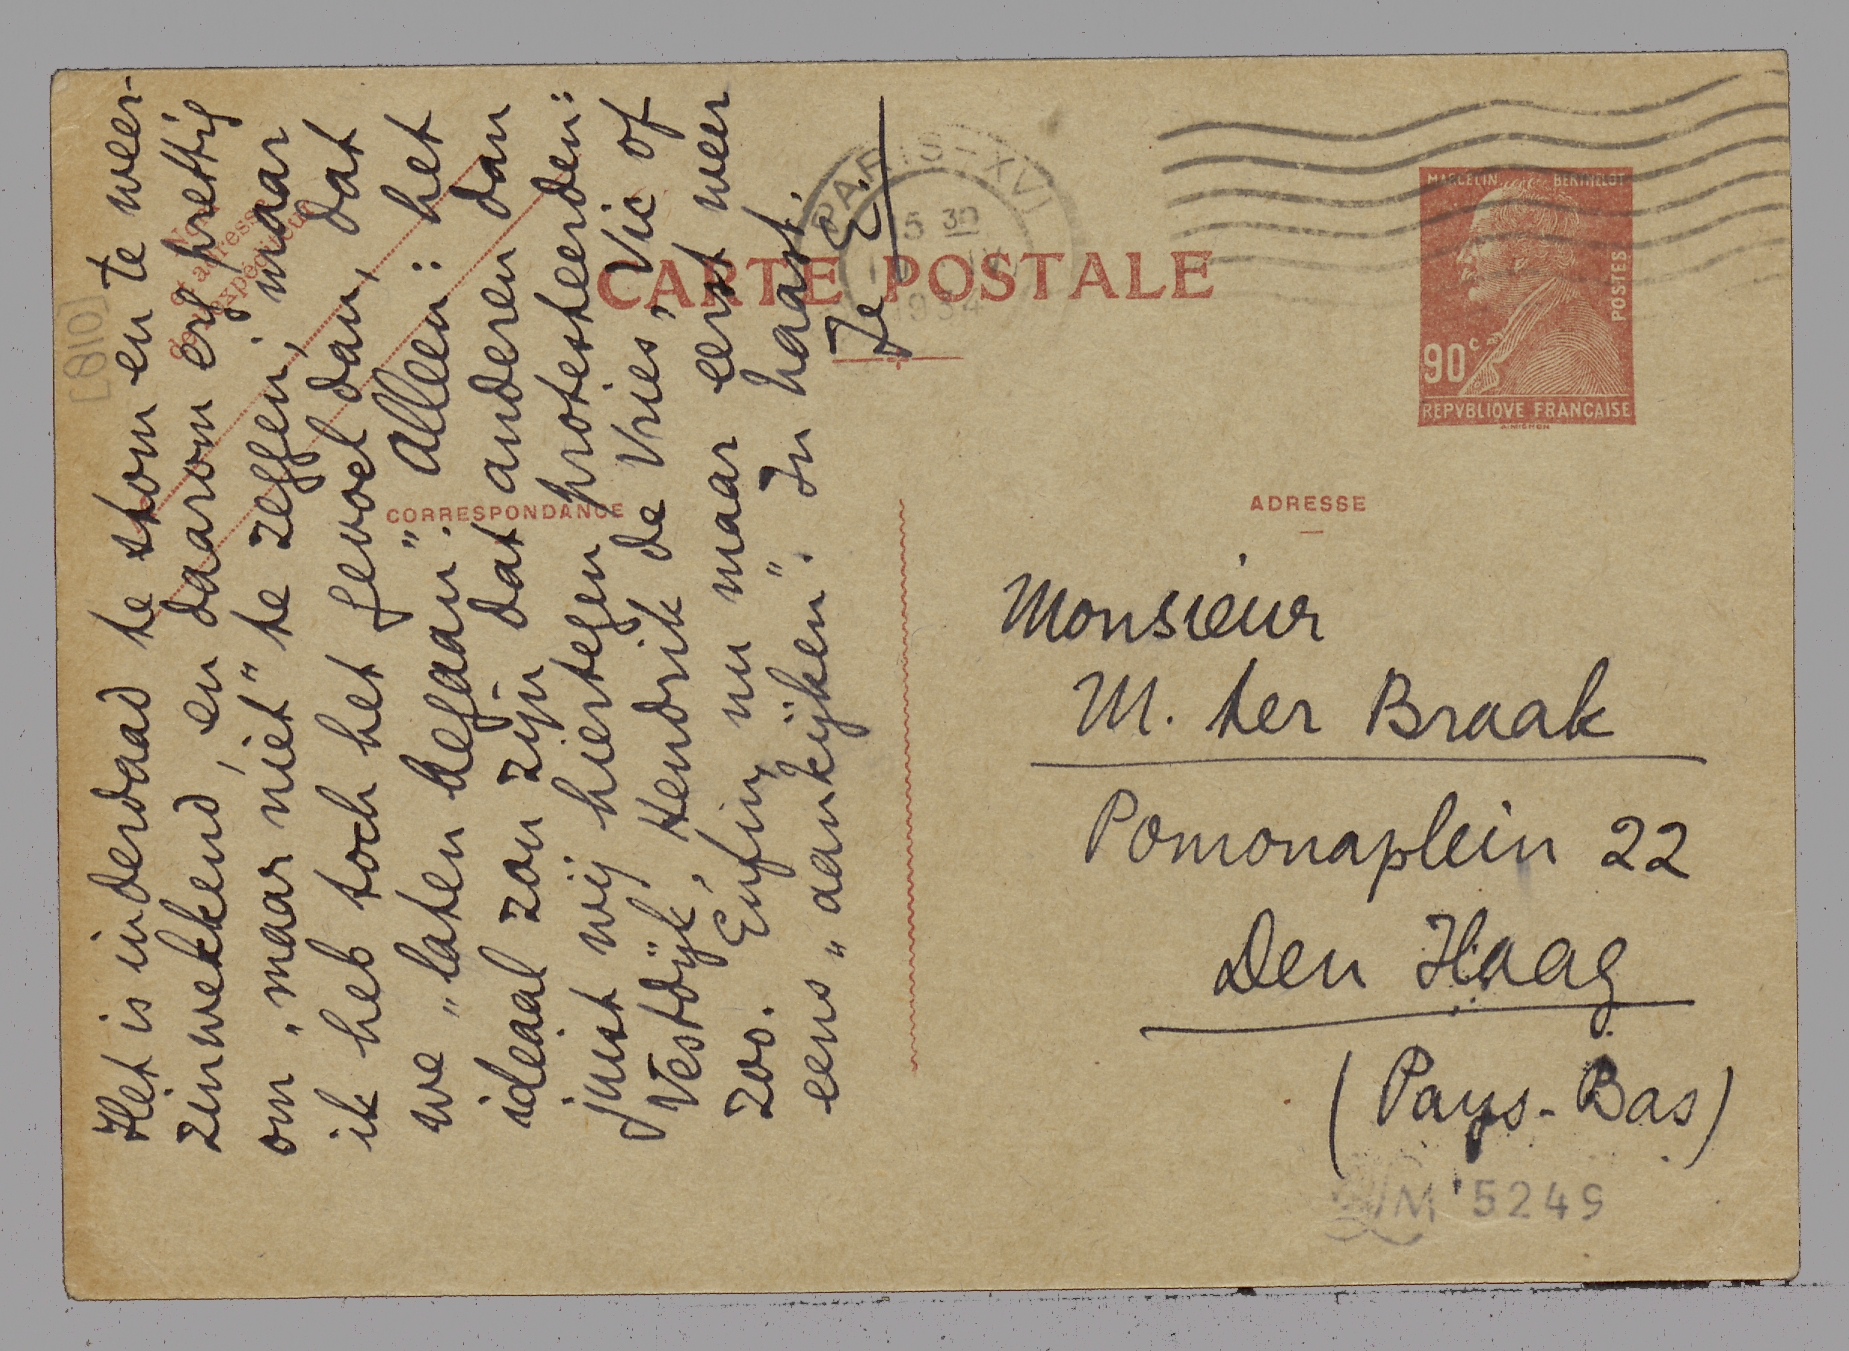 Het is inderdaad te stom en te weer-
zinwekkend, en daarom erg prettig
om „maar niet" te zeggen; maar
ik heb toch het gevoel dan, dat
we „laten begaan". Alleen: het
ideaal zou zijn dat anderen dan
juist wij hiertegen protesteerden:
Vestdijk, Hendrik de Vries, Vic of
zoo. Enfin, nu maar eerst weer
eens „aankijken". In haast,
Je E.
[810]
CARTE POSTALE
CORRESPONDANCE
PARIS-XVI
15 30
IV
1934
MARCELIN BERTHELOT
POSTES
90c
REPVBLIQVE FRANCAISE
ADRESSE
Monsieur
M. ter Braak
Pomonaplein 22
Den Haag
(Pays-Bas)
M 5249